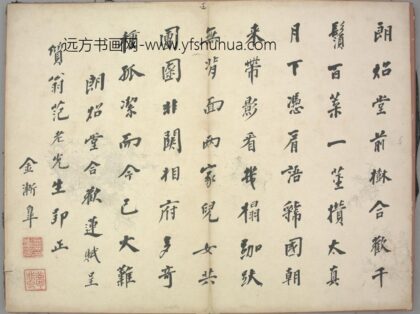 远方书画网-www.yfshuhua.com
朗炤堂前樹合歡千
鬚百葉一莖攢太真
月下憑肩語虢國朝
來帶影看幾榻跏趺
無背面兩家兒女共
團圞非關相府多奇
種孤潔而今已大難
朗炤堂合歡連賦呈
質翁范老先生郢正
金漸皋